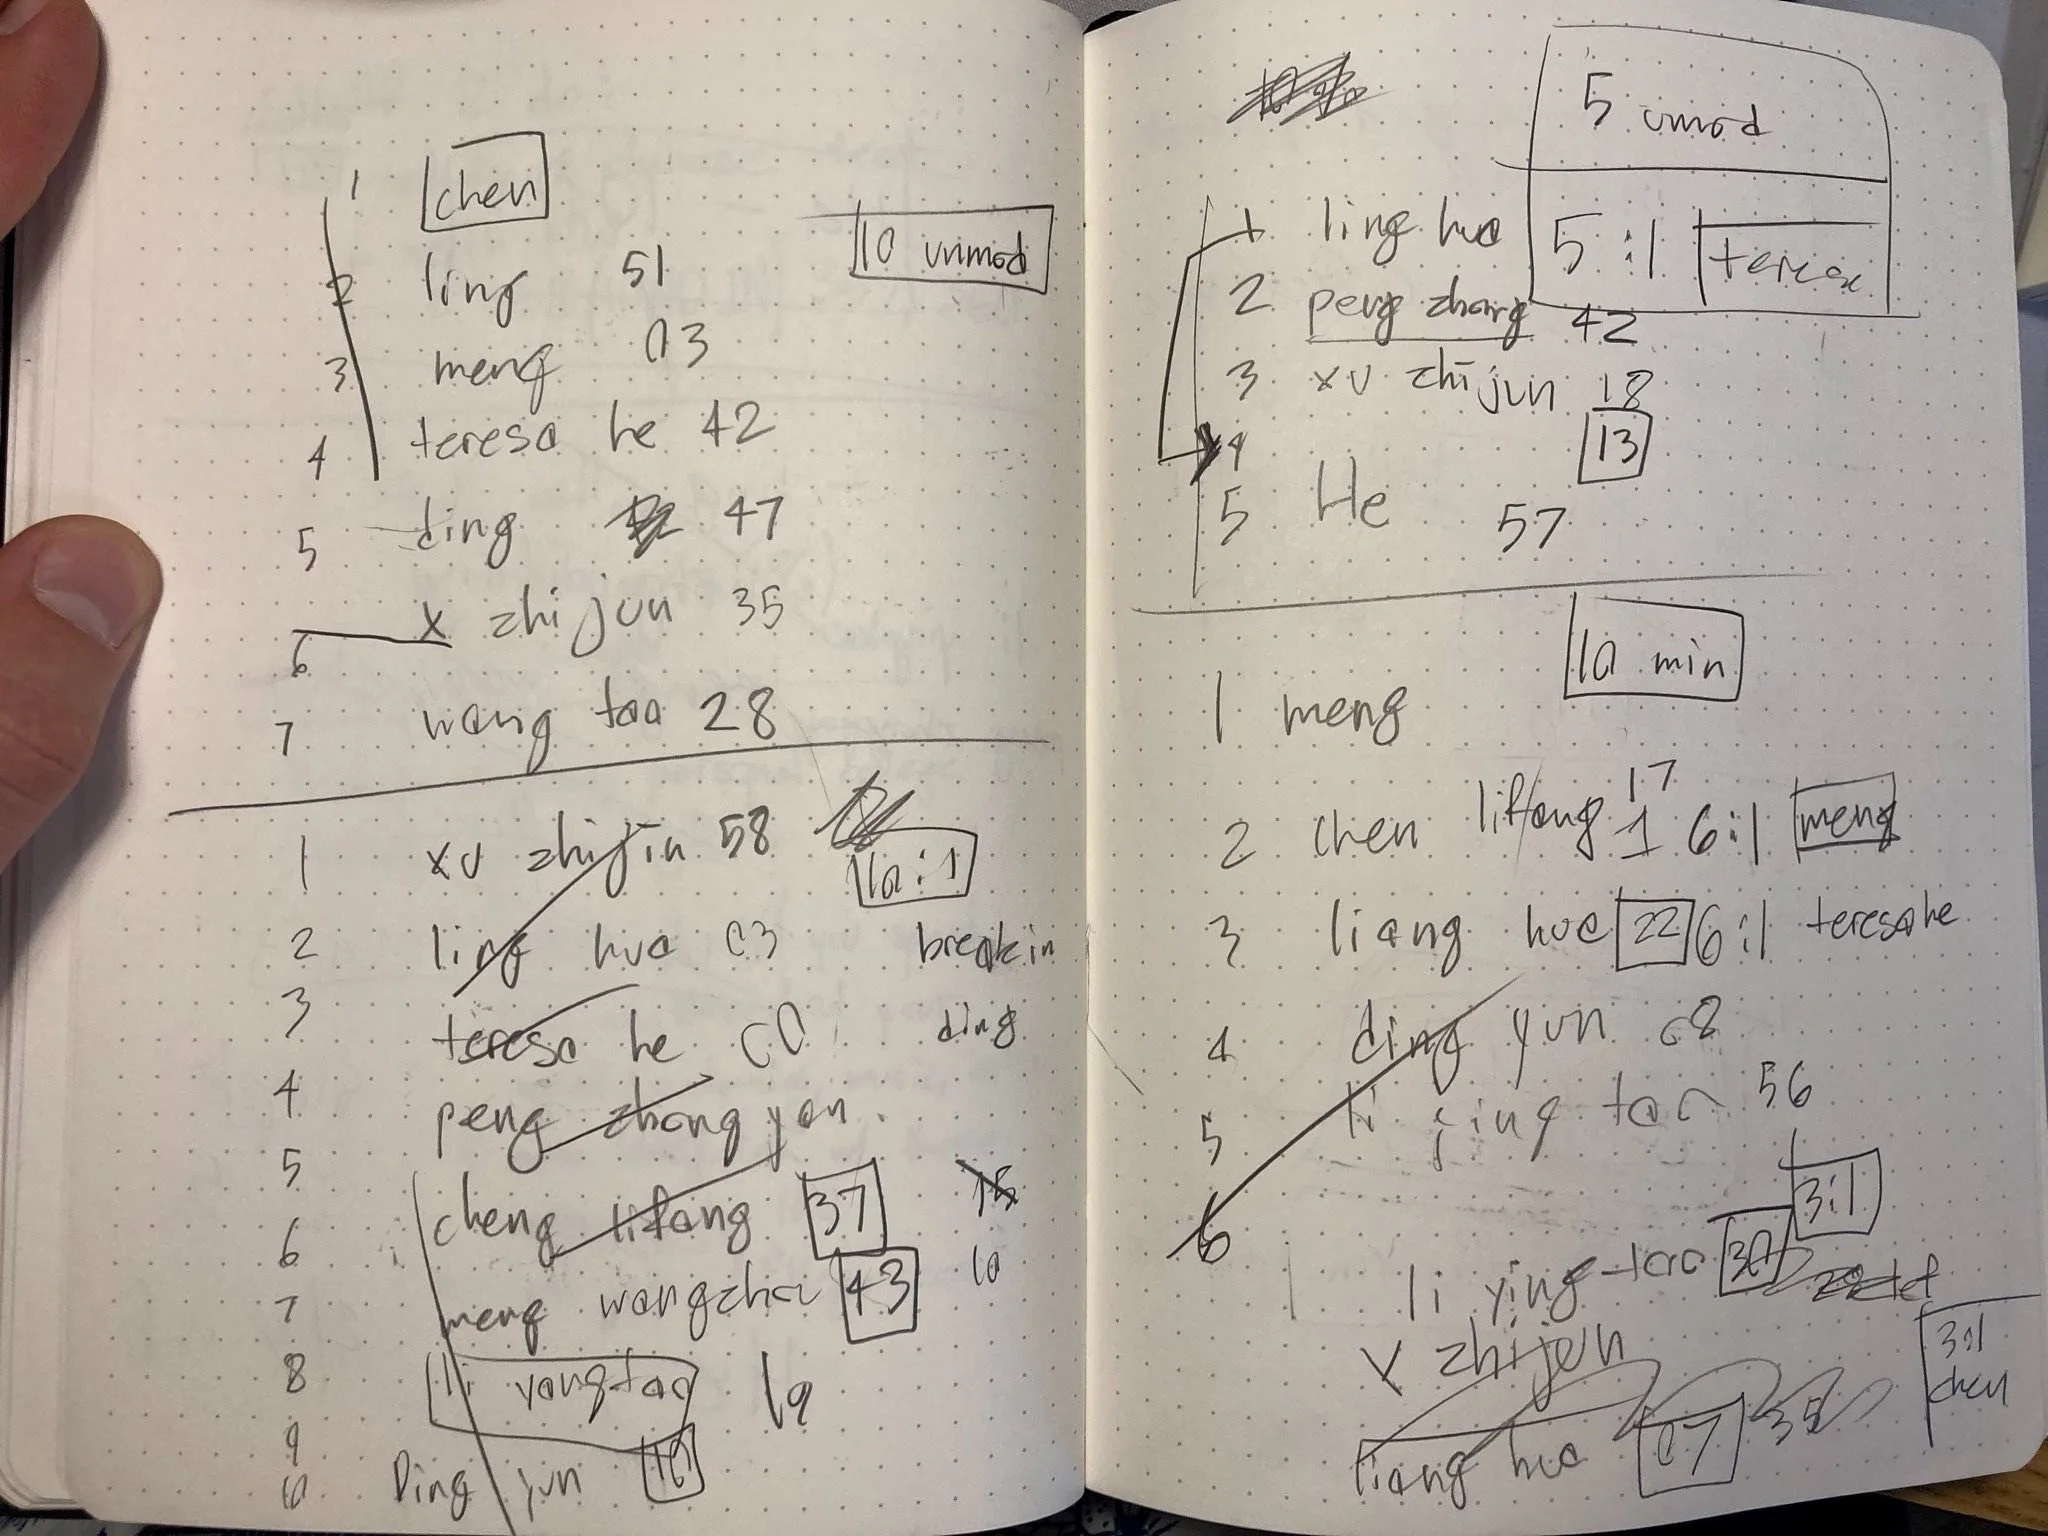 1 chen
10 unmod
2 ling 51
3 meng 03
4 teresa he 42
5 ding 47
6 x zhijun 35
7 wang tao 28
1 xu zhijin 58
10:1
2 ling hua 03 breakin
3 teresa he 00 ding
4 peng zhong yan.
5 cheng lifang 37 15
6 meng wangzhou 43 10
7
8 li yongtao 19
9
10 Ding yun 10
5 unmod
5:1 teresa
1 ling hua
2 peng zhong 42
3 xu zhijun 18
4 13
5 He 57
10 min
1 meng
2 chen lifang 17 1 6:1 meng
3 liang hua 22 6:1 teresa he
4 ding yun 08
5 li jing tao 56
6
3:1
li ying tao 30
x zhijun
3:1 chen
liang hua 07 35